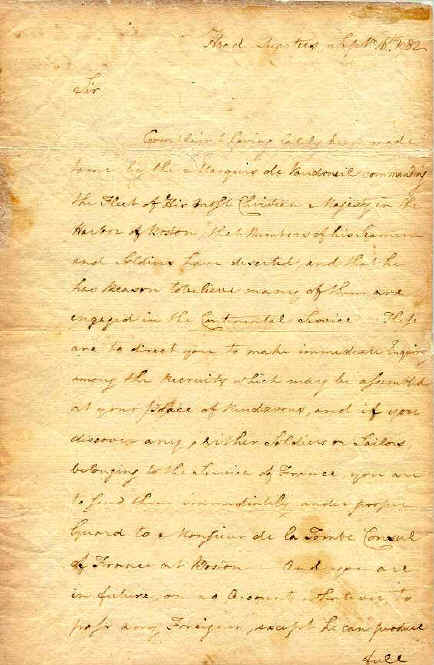 Head Quarters Sept. 1782
Sir
Complaint having lately been made
to me by the Marquis de Vaudreuil commanding
the Fleet of His most Christian Majesty in the
Harbor of Boston, that Numbers of his Seamen
and Soldiers have deserted, and that he
has Reason to believe many of them are
engaged in the Continental Service These
are to direct you to make immediate Enquiry
among the Recruits which may be assembled
at your Place of Rendezvous, and if you
discover any, either Soldiers or Sailors
belonging to the Service of France, you are
to send them immediately under proper
Guard to Monsieur de la Tombe Consul
of France at Boston And you are
in future, on no Account whatever to
pass any Foreigner, except he can produce
full